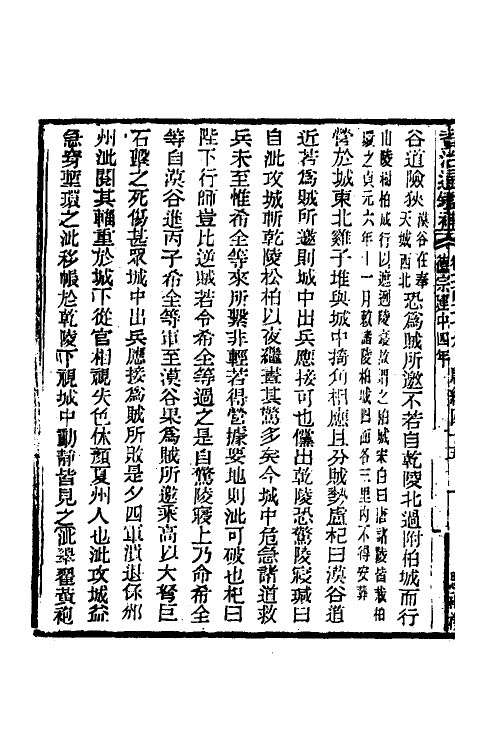 谷道險狹漠谷在奉天城西北恐爲賊所邀不若自乾陵北過附柏城而行
山陵樹柏成行以遮迾陵寢故謂之柏城宋白曰唐諸陵皆栽柏環之貞元六年十一月敕諸陵柏城四面各三里內不得安葬
營於城東北雞子堆與城中掎角相應且分賊勢盧杞曰漠谷道
近若爲賊所邀則城中出兵應接可也儻出乾陵恐驚陵寢瑊曰
自泚攻城斬乾陵松柏以夜繼晝其驚多矣今城中危急諸道救
兵未至惟希全等來所繫非輕若得營據要地則泚可破也杞曰
陛下行師豈比逆賊若令希全等過之是自驚陵寢上乃命希全
等自漠谷進丙子希全等軍至漠谷果爲賊所邀乘高以大弩巨
石擊之死傷甚眾城中出兵應接爲賊所敗是夕四軍潰退保邠
州泚閱其輜重於城下從官相視失色休顏夏州人也泚攻城益
急穿塹環之泚移帳於乾陵下視城中動靜皆見之泚舉翟黃袍